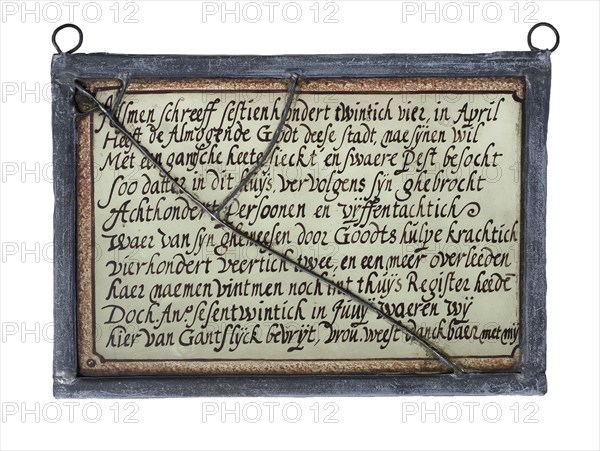 Allmen schreeff sestienhondert twintich vier, in April
Heeft de Almogende Godt deese stadt, nae synen wil
Met een gansche heete sieckt en swaere Pest besocht
Soo datter in dit huÿs, vervolgens sÿn ghebrocht
Achthondert Persoonen en vÿffentachtich
Waer van sÿn ghenesen door Goodts hulpe krachtich
vierhondert veertich twee, en een meer overleeden
haer naemen vintmen noch int thuÿs Register heede
Doch An.º sesentwintich in Juny waeren wÿ
hier van Gantslÿck bevrÿt, vrou weest danckbaer met mÿ
PHOTO 12